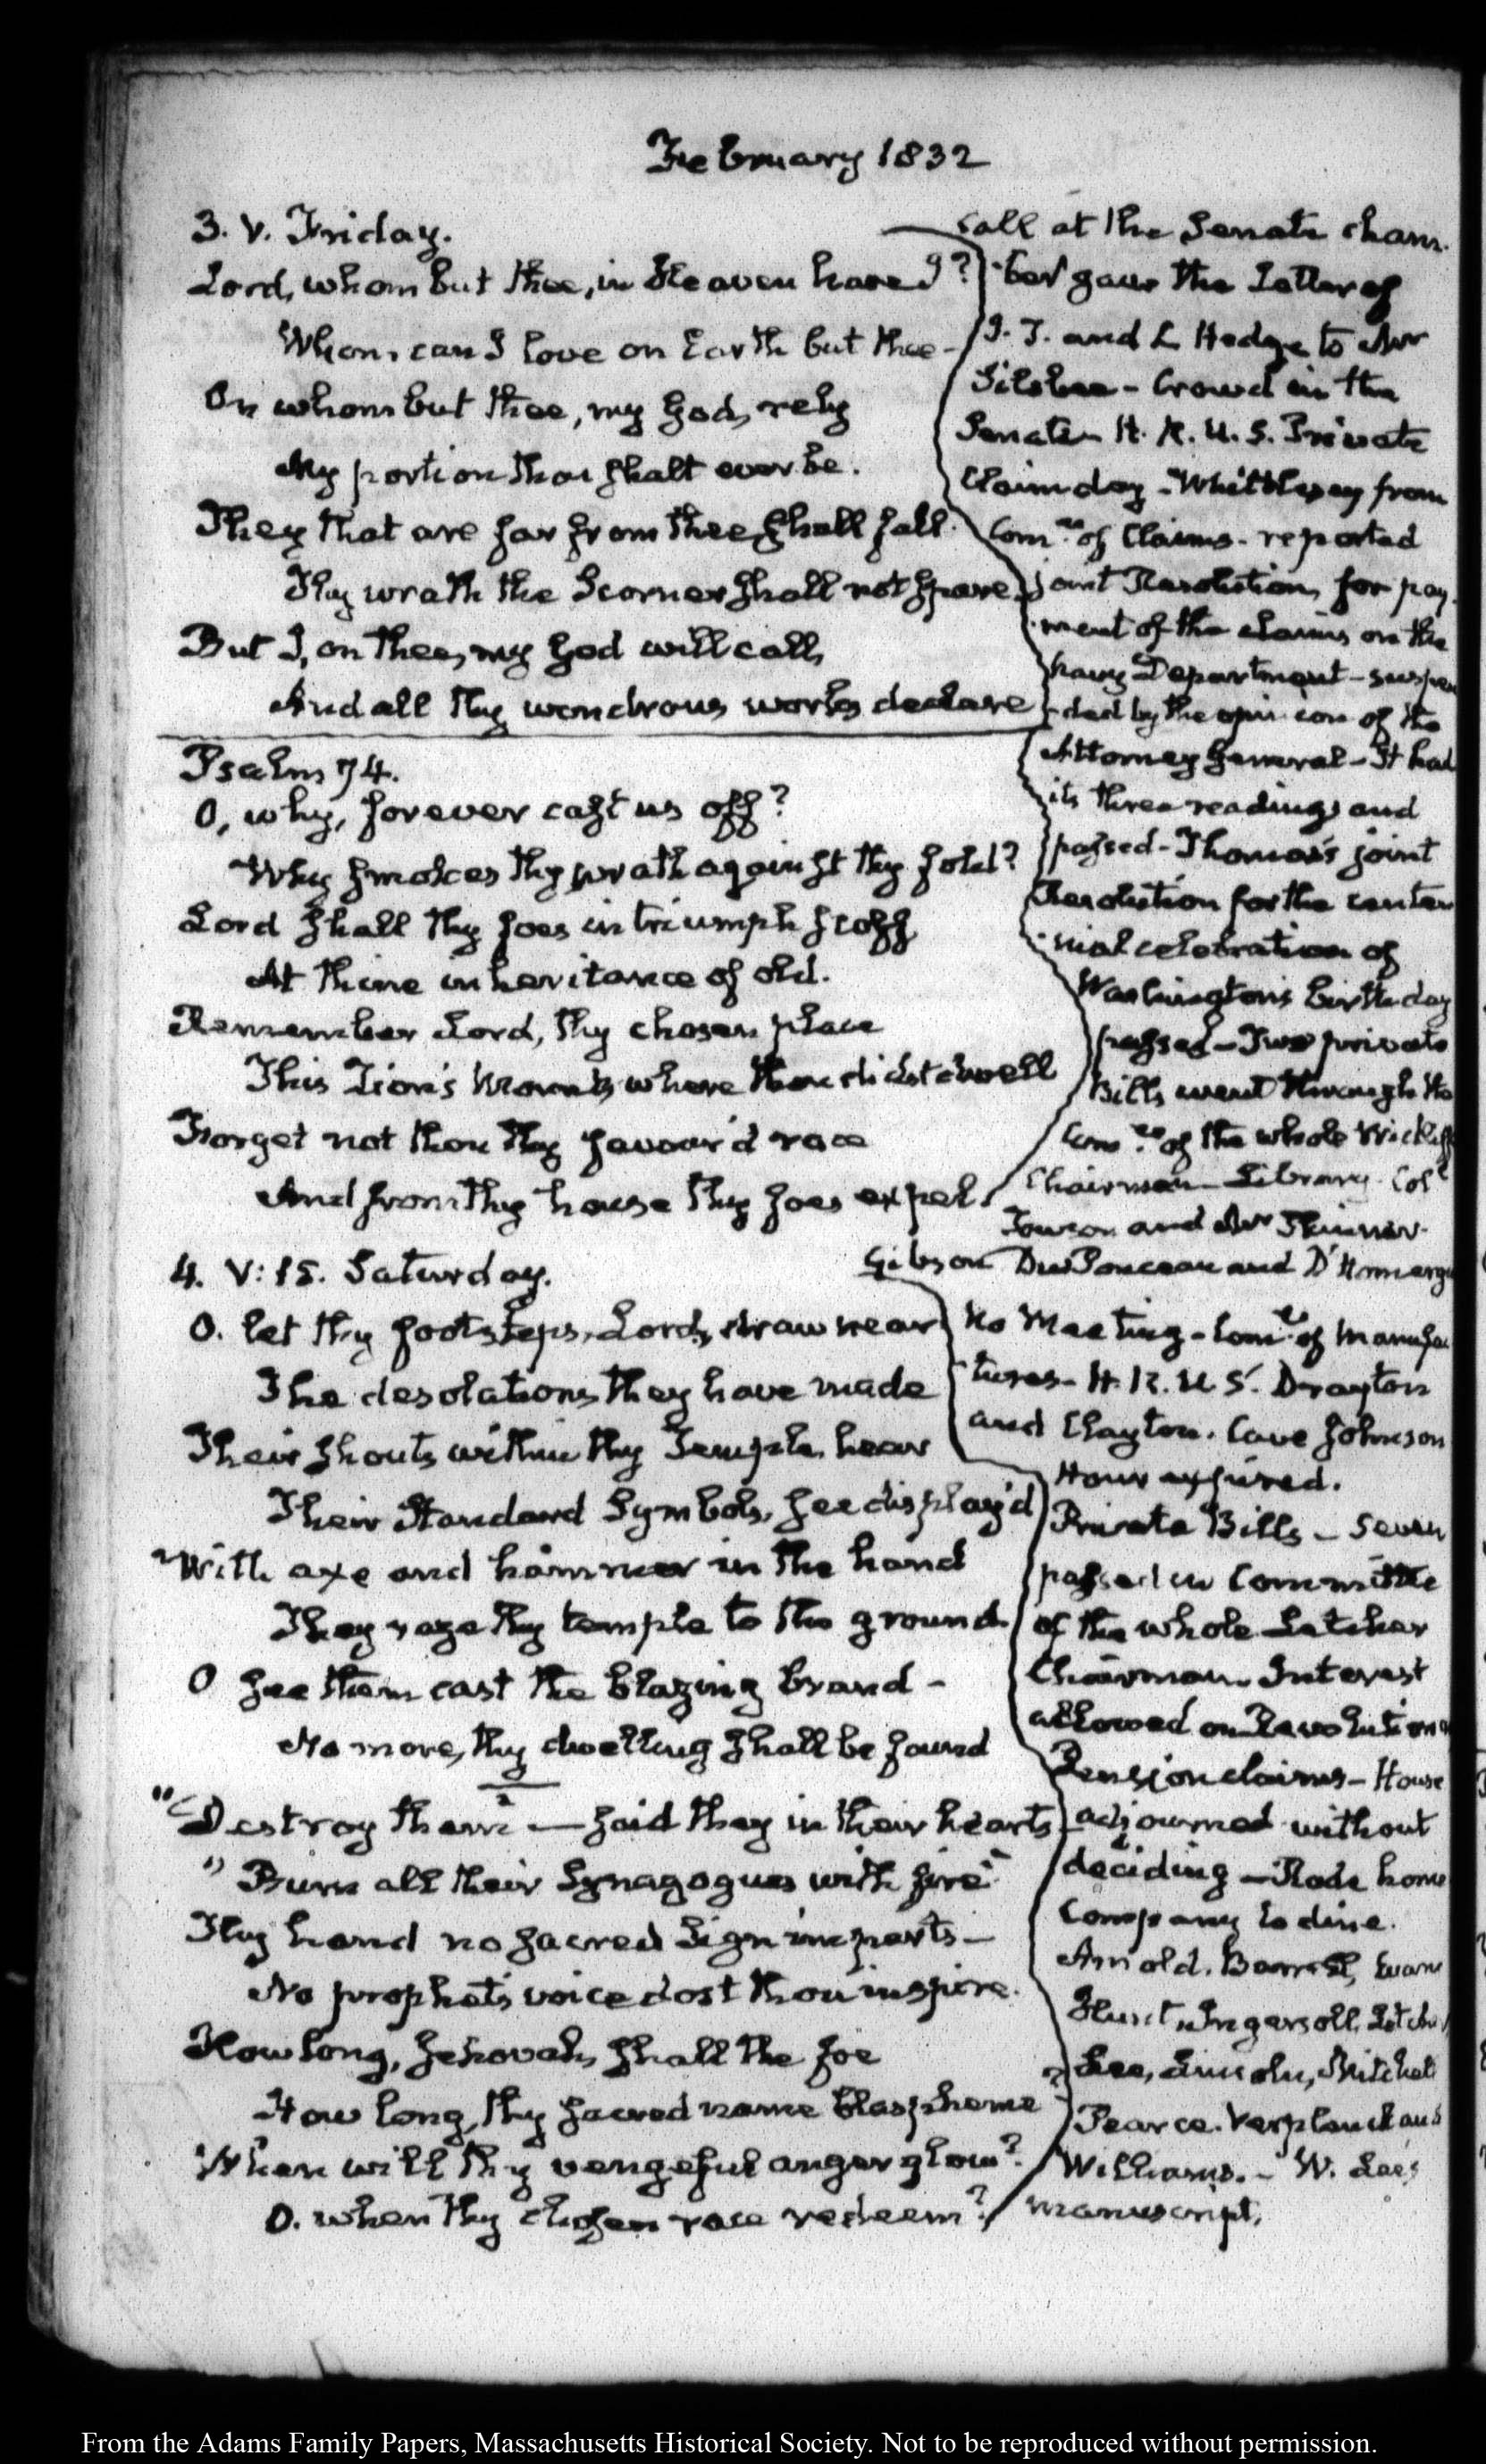 February 1832
3. V. Friday.
Lord, whom but thee, in Heaven have I?
Whom can I love on Earth but thee —
On whom but thee, my God, rely
My portion thou shalt ever be.
They that are far from thee, shall fall.
Thy wrath the Scorner shall not spare
But I, on thee, my God will call,
And all thy wondrous works declare
Psalm 74.
O, why, forever cast us off?
Why smokes thy wrath against thy fold?
Lord shall thy foes in triumph scoff
At thine inheritance of old.
Remember Lord, thy chosen place
This Zion's Mount, where thou didst dwell
Forget not thou thy favour'd race
And from thy house thy foes expel.
call at the Senate cham-
-ber gave the Letter of
I. T. and L Hedge to Mr
Silsbee — Crowd in the
Senate — H. R. U. S. Private
Claim day — Whittlesey from
Comee. of Claims — reported
joint Resolution, for pay-
-ment of the claims on the
Navy Department — suspen
-ded by the opinion of the
Attorney General — It had
its three readings and
passed — Thomas's joint
Resolution for the centen
-nial celebration of
Washington's birth day
passed — Two private
Bills went through the
Comee. of the whole Wickliff
Chairman — Library. Colo
Towson and Mr Skinner.
Gibson DuPonceau and D'Homergue
4. V: 15. Saturday.
O. let thy footsteps, Lord, draw near
The desolations they have made
Their shouts within thy Temple, hear
Their Standard Symbols, see display'd
With axe and hammer in the hand
They raze thy temple to the ground.
O see them cast the blazing brand —
No more, thy dwelling shall be found
2
"Destroy them — said they in their hearts
"Burn all their Synagogues with fire"
Thy hand no sacred Sign imparts —
No prophet's voice dost thou inspire.
How long, Jehovah, shall the foe
How long, thy sacred name blaspheme?
When will thy vengeful anger glow?
O. when thy chosen race redeem?
No Meeting — Comee. of Manufac
tures — H. R. U. S. Drayton
and Clayton. Cave Johnson
Hour expired.
Private Bills — Seven
passed in Committee
of the whole Letcher
Chairman. Interest
allowed on Revolutiona
Pension claims — House
adjourned without
deciding — Rode home
Company to dine.
Arnold. Barrest, Evans
Hunt, Ingersoll, Letcher
Lee, Lincoln, Mitchell
Pearce. Verplanck and
Williams. — W. Lee's
manuscript.
From the Adams Family Papers, Massachusetts Historical Society. Not to be reproduced without permission.